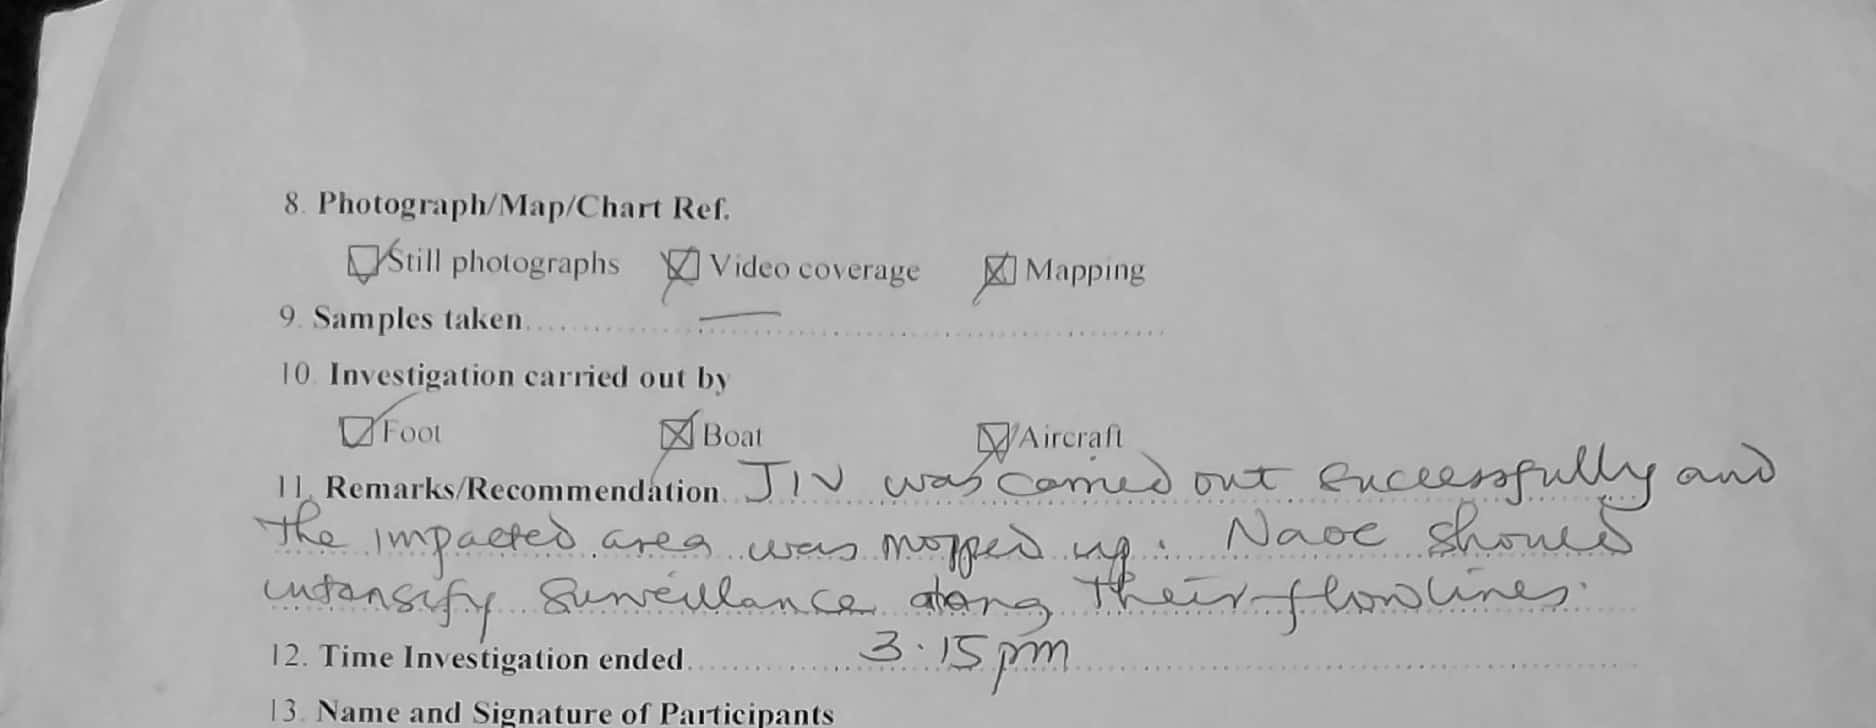 8. Photograph/Map/Chart Ref.
Still photographs Video coverage Mapping
9. Samples taken
10. Investigation carried out by
Foot Boat Aircraft
11. Remarks/Recommendation JIV was carried out successfully and
the impacted area was mopped up. Naoc should
intensify surveillance along their flowlines.
12. Time Investigation ended 3.15pm
13. Name and Signature of Participants